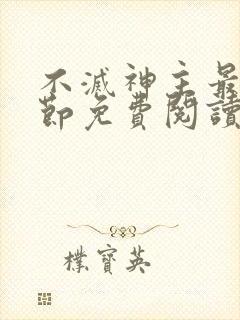 不滅神主最
節免費閱讀
樸寶英